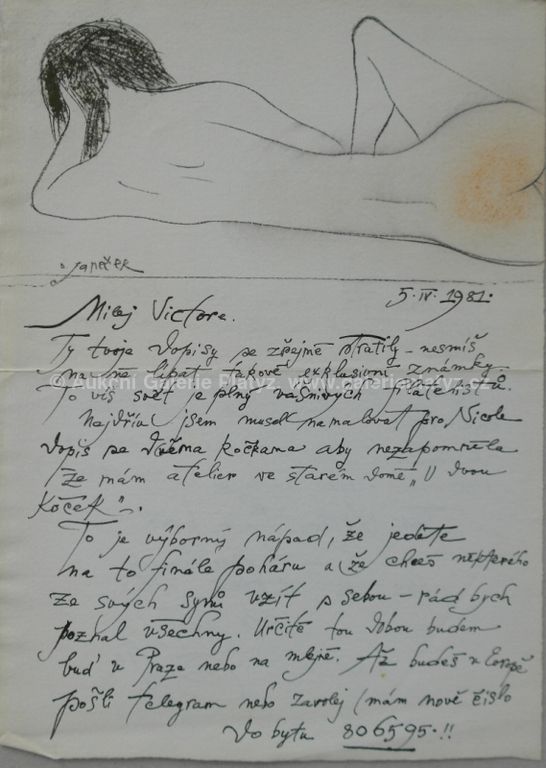 Janeček
5. IV. 1981.
Milej Victore.
Ty tvoje dopisy se zřejmě ztratily – nesmíš
na ně lípat takové exklusivní známky.
© Aukční Galerie Platýz, www.galerieplatyz.cz
To víš svět je plný vášnivých filatelistů.
Najdřív jsem musel namalovat pro Nicole
dopis se dvěma kočkama aby nezapomněla
že mám atelier ve starém domě „U dvou
koček“ –.
To je výborný nápad, že jedete
na to finále poháru a že chceš některého
ze svých synů vzít s sebou – rád bych
poznal všechny. Určitě tou dobou budem
buď v Praze nebo na mlejně. Až budeš v Evropě
pošli telegram nebo zavolej (mám nové číslo
do bytu 806595. !!